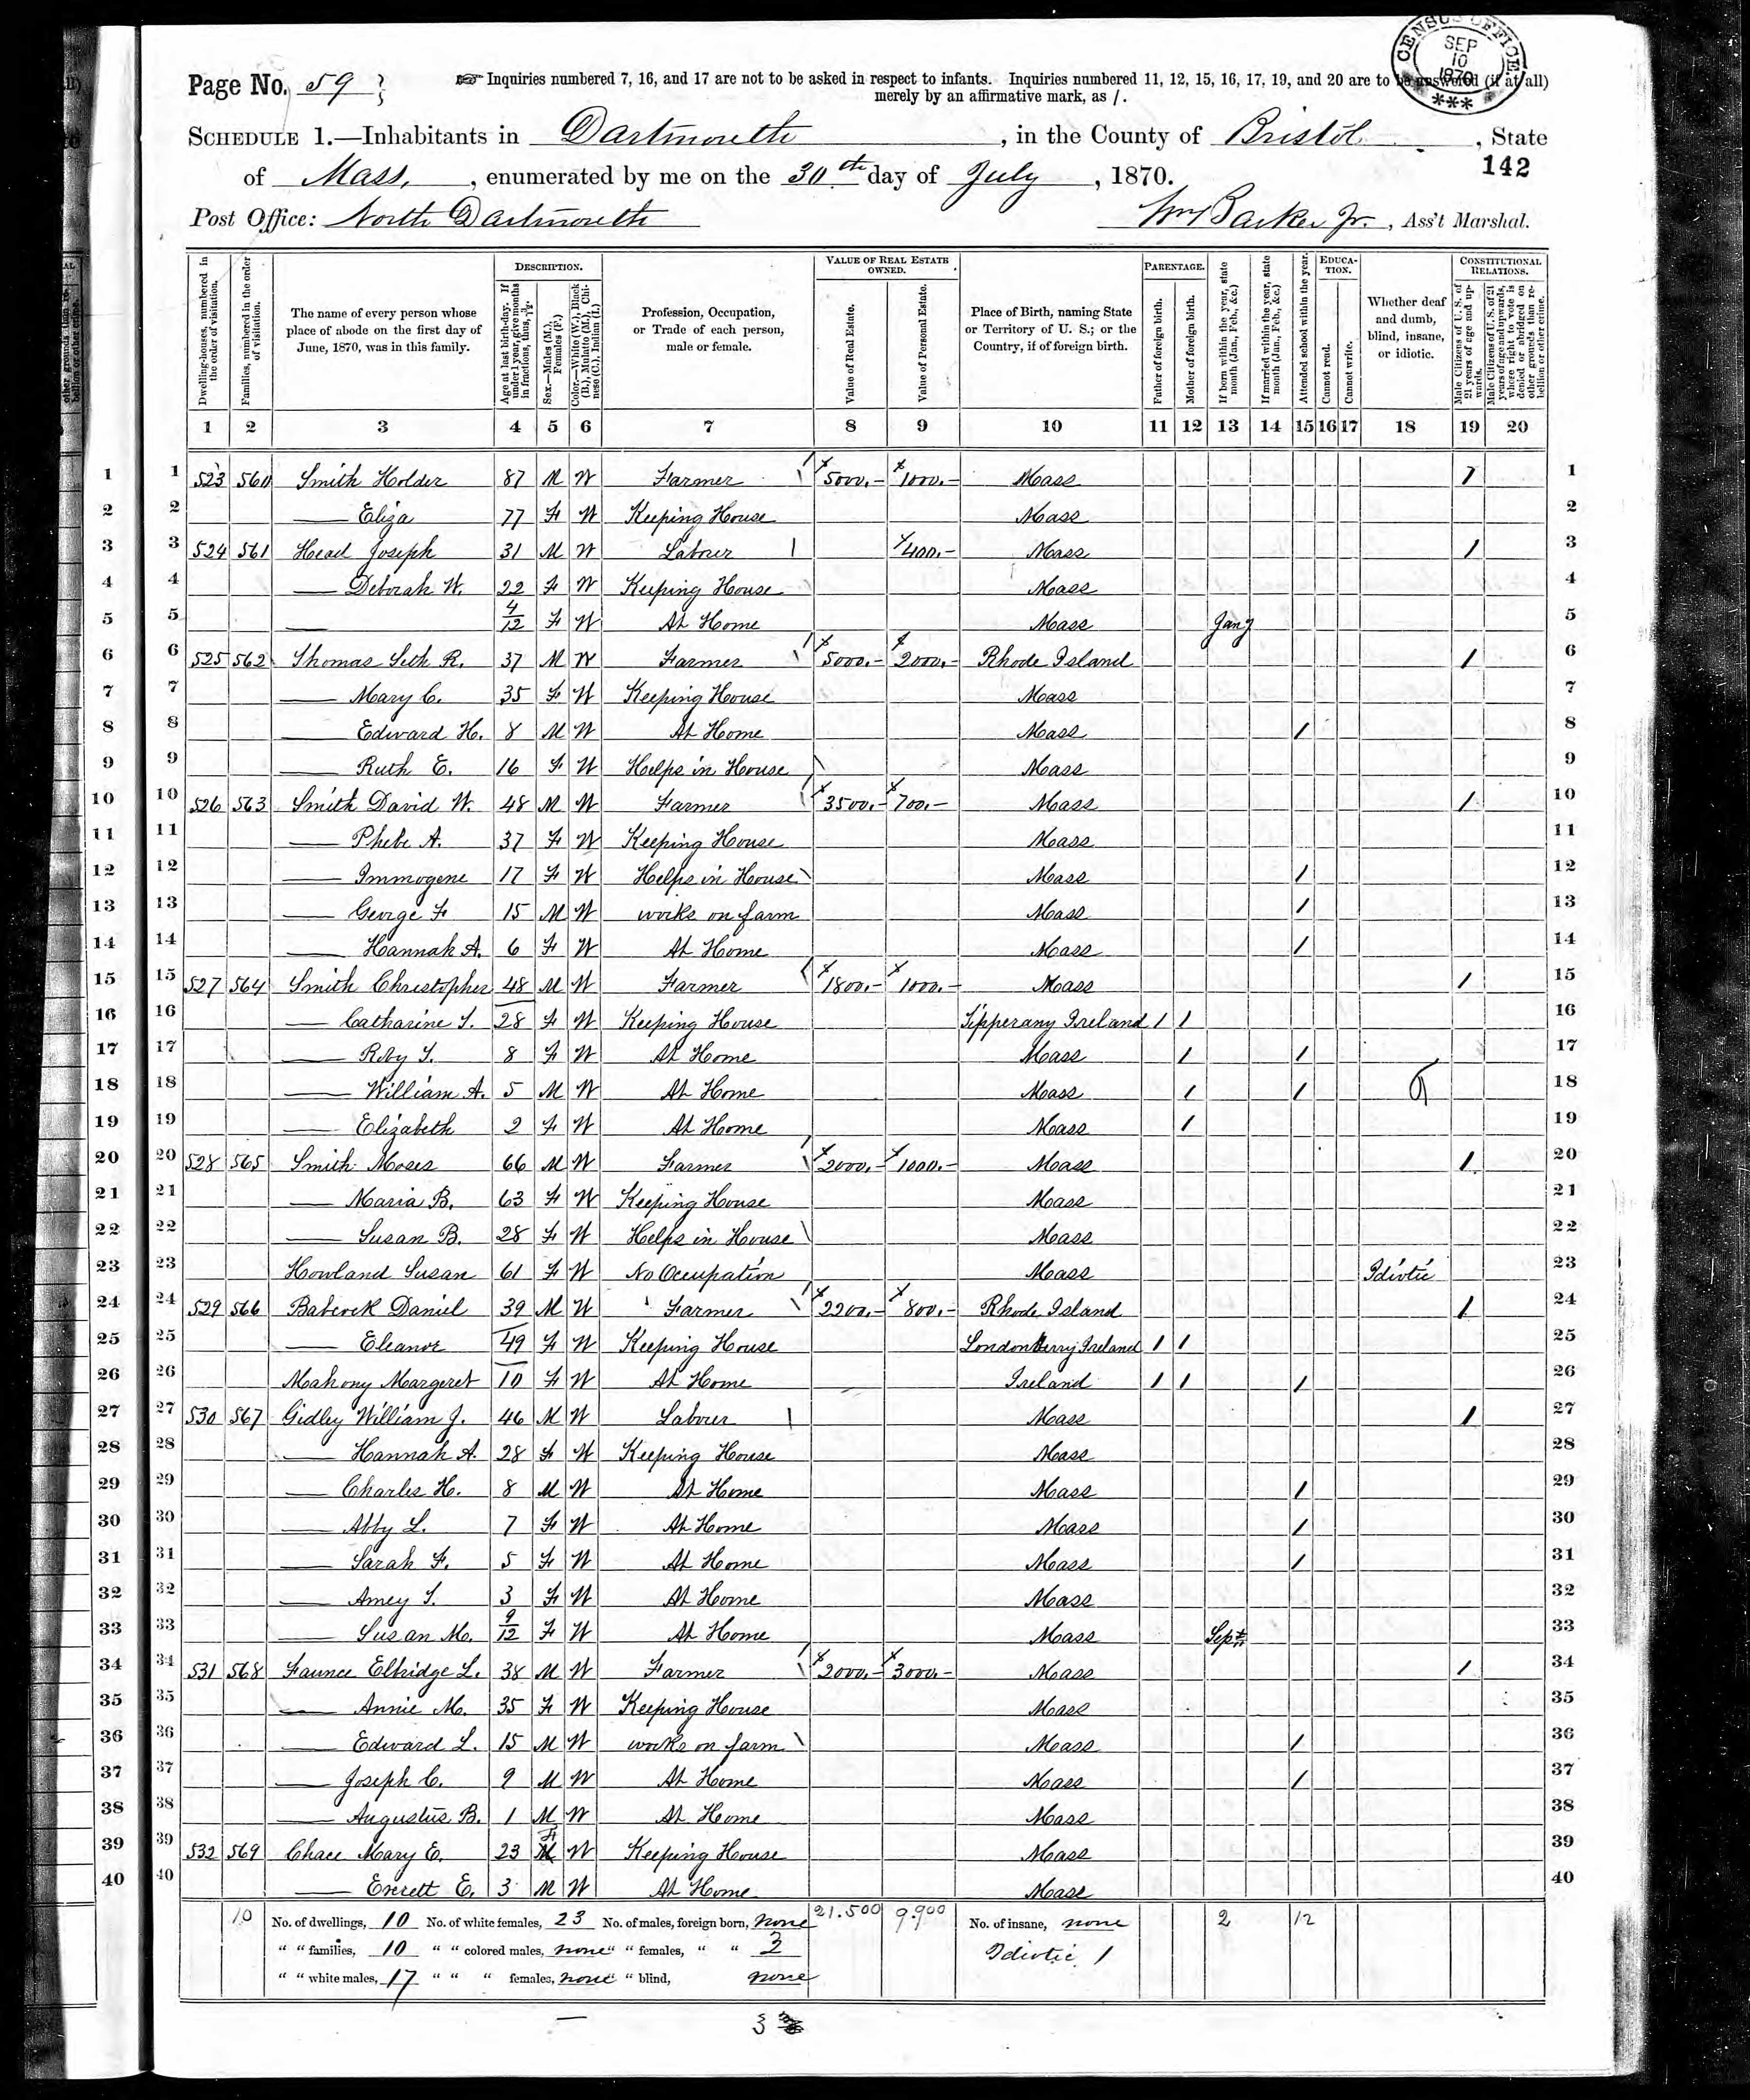 CENSUS OFFICE SEP 10 1870 ***
Page No. 59 Inquiries numbered 7, 16, and 17 are not to be asked in respect to infants. Inquiries numbered 11, 12, 15, 16, 17, 19, and 20 are to be answered (if at all)
merely by an affirmative mark, as /.
SCHEDULE 1.—Inhabitants in Dartmouth, in the County of Bristol, State
142
of Mass, enumerated by me on the 30th day of July, 1870.
Post Office: North Dartmouth Wm Barker Jr., Ass't Marshal.
Dwelling-houses, numbered in the order of visitation.
Families, numbered in the order of visitation.
The name of every person whose place of abode on the first day of June, 1870, was in this family.
DESCRIPTION.
Age at last birth-day. If under 1 year, give months in fractions, thus, 3/12.
Sex.—Males (M.), Females (F.)
Color.—White (W.), Black (B.), Mulatto (M.), Chinese (C.), Indian (I.)
Profession, Occupation, or Trade of each person, male or female.
VALUE OF REAL ESTATE OWNED.
Value of Real Estate.
Value of Personal Estate.
Place of Birth, naming State or Territory of U. S.; or the Country, if of foreign birth.
PARENTAGE.
Father of foreign birth.
Mother of foreign birth.
If born within the year, state month (Jan., Feb., &c.)
If married within the year, state month (Jan., Feb., &c.)
Attended school within the year.
EDUCATION.
Cannot read.
Cannot write.
Whether deaf and dumb, blind, insane, or idiotic.
CONSTITUTIONAL RELATIONS.
Male Citizens of U. S. of 21 years of age and upwards.
Male Citizens of U. S. of 21 years of age and upwards, whose right to vote is denied or abridged on other grounds than rebellion or other crime.
1 2 3 4 5 6 7 8 9 10 11 12 13 14 15 16 17 18 19 20
1 1 523 560 Smith Holder 87 M W Farmer 5000.- 1000.- Mass / 1
2 2 — Eliza 77 F W Keeping House Mass 2
3 3 524 561 Head Joseph 31 M W Labour 400.- Mass / 3
4 4 — Deborah W. 22 F W Keeping House Mass 4
5 5 — 4/12 F W At Home Mass Jany 5
6 6 525 562 Thomas Seth R. 37 M W Farmer 5000.- 2000.- Rhode Island / 6
7 7 — Mary C. 35 F W Keeping House Mass 7
8 8 — Edward H. 8 M W At Home Mass / 8
9 9 — Ruth E. 16 F W Helps in House Mass 9
10 10 526 563 Smith David W. 48 M W Farmer 3500.- 700.- Mass / 10
11 11 — Phebe A. 37 F W Keeping House Mass 11
12 12 — Immogene 17 F W Helps in House Mass / 12
13 13 — George F 15 M W works on farm Mass / 13
14 14 — Hannah A. 6 F W At Home Mass / 14
15 15 527 564 Smith Christopher 48 M W Farmer 1800.- 1000.- Mass / 15
16 16 — Catharine T. 28 F W Keeping House Tipperany Ireland / / 16
17 17 — Roby T. 8 F W At Home Mass / / 17
18 18 — William A. 5 M W At Home Mass / / 18
19 19 — Elizabeth 2 F W At Home Mass / 19
20 20 528 565 Smith Moses 66 M W Farmer 2000.- 1000.- Mass / 20
21 21 — Maria B. 63 F W Keeping House Mass 21
22 22 — Susan B. 28 F W Helps in House Mass 22
23 23 Howland Susan 61 F W No Occupation Mass Idiotic 23
24 24 529 566 Babcock Daniel 39 M W Farmer 2200.- 800.- Rhode Island / 24
25 25 — Eleanor 49 F W Keeping House Londonderry Ireland / / 25
26 26 Mahony Margeret 10 F W At Home Ireland / / / 26
27 27 530 567 Gidley William J. 46 M W Labour Mass / 27
28 28 — Hannah A. 28 F W Keeping House Mass 28
29 29 — Charles H. 8 M W At Home Mass / 29
30 30 — Abby L. 7 F W At Home Mass / 30
31 31 — Sarah F. 5 F W At Home Mass / 31
32 32 — Amey T. 3 F W At Home Mass 32
33 33 — Susan M. 9/12 F W At Home Mass Sept 33
34 34 531 568 Faunce Elbridge L. 38 M W Farmer 2000.- 3000.- Mass / 34
35 35 — Annie M. 35 F W Keeping House Mass 35
36 36 — Edward L. 15 M W works on farm Mass / 36
37 37 — Joseph C. 9 M W At Home Mass / 37
38 38 — Augustus B. 1 M W At Home Mass 38
39 39 532 569 Chace Mary E. 23 F W Keeping House Mass 39
40 40 — Everett E. 3 M W At Home Mass 40
10 No. of dwellings, 10 No. of white females, 23 No. of males, foreign born, none 21.500 9.900 No. of insane, none 2 12
" " families, 10 " " colored males, none " " females, " " 3 Idiotic 1
" " white males, 17 " " " females, none " " blind, none
3